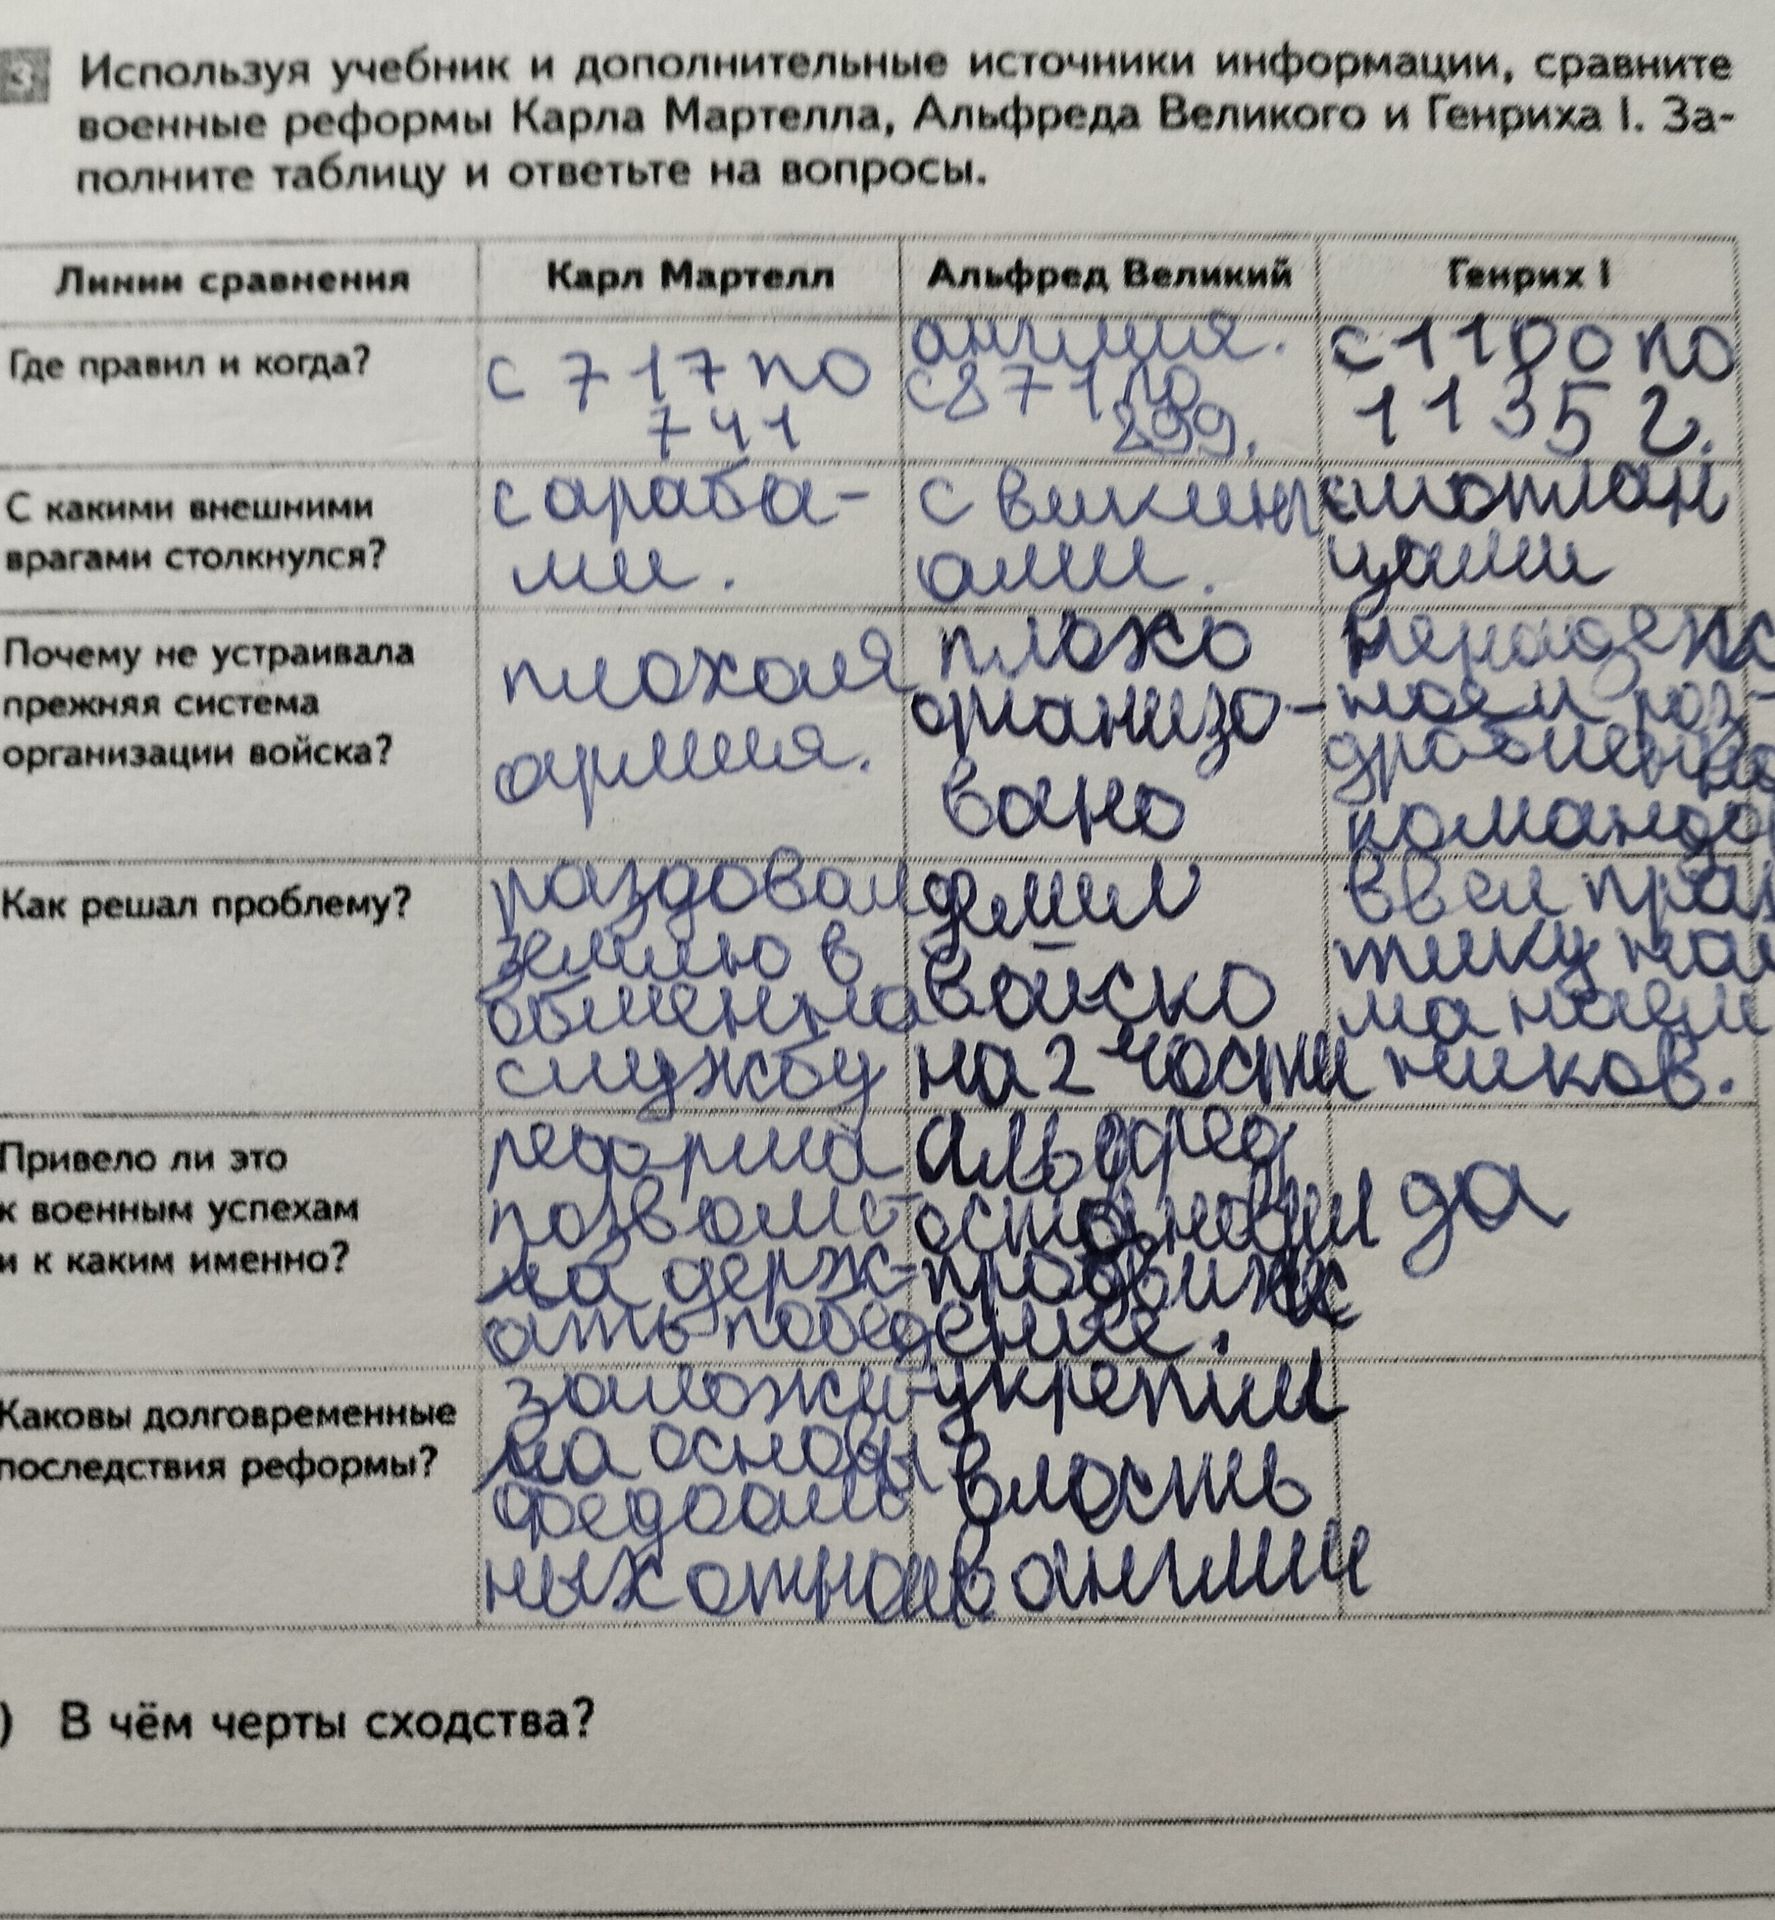 3 Используя учебник и дополнительные источники информации, сравните
военные реформы Карла Мартелла, Альфреда Великого и Генриха I. За-
полните таблицу и ответьте на вопросы.
Линии сравнения
Карл Мартелл
Альфред Великий
Генрих I
Где правил и когда?
с 717 по
741
англия.
с 871 по
899.
с 1100 по
1135 г.
С какими внешними
врагами столкнулся?
с араба-
ми.
с викинг
ами.
с шотлан
цами
Почему не устраивала
прежняя система
организации войска?
плохая
армия.
плохо
организо-
вано
ненадеж
ная и раз-
дробленно
командо
Как решал проблему?
раздовал
землю в
обмен на
службу
делил
войско
на 2 части
ввел прак
тику най
ма наем
ников.
Привело ли это
к военным успехам
и к каким именно?
реформа
позволи-
ла держ-
ать победе
альфред
остановил
продвиже
ение.
да
Каковы долговременные
последствия реформы?
заложи-
ла основы
феодаль
ных отнош
укрепил
власть
в англии
) В чём черты сходства?